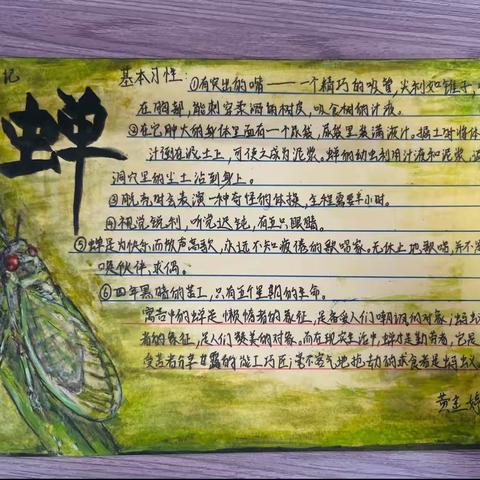 记
蝉
基本习性:①有突出的嘴——一个精巧的吸管,尖利如锥子,
在胸部,能刺穿柔润的树皮,吸食树的汁液。
②在它肿大的身体里面有一个尿袋,尿袋里装满液汁。掘土时将体
汁倒在泥土上,可使之成为泥浆。蝉的幼虫利用汁液和泥浆,
洞穴里的尘土沾到身上。
③脱壳时会表演一种奇怪的体操,全程需要半小时。
④视觉锐利,听觉迟钝,有五只眼睛。
⑤蝉是为快乐而放声高歌,永远不知疲倦的歌唱家。无休止地歌唱,并不
唤伙伴,求偶。
⑥四年黑暗的苦工,只有五个星期的生命。
寓言中的蝉是懒惰者的象征,是备受人们嘲讽的对象;蚂
者的象征,是人们赞美的对象。而在现实生活中,蝉才是勤劳者,它是
受苦者分享甘露的能工巧匠;毫不客气地抢劫的求食者是蚂蚁
黄